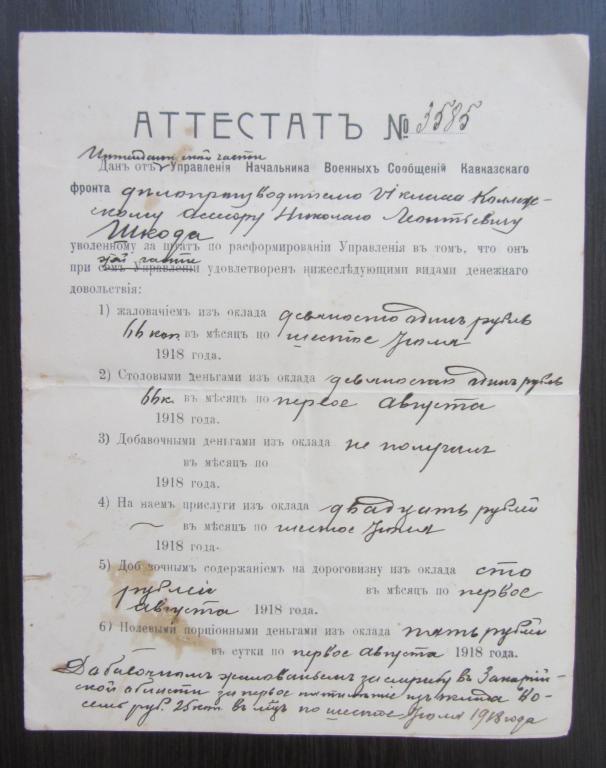 АТТЕСТАТЪ № 3585
Интендантской части
Данъ отъ Управленія Начальника Военныхъ Сообщеній Кавказскаго
фронта дѣлопроизводителю VI класса Коллеж-
скому Асесору Николаю Леонтьевичу
Шкода
уволенному за штатъ по расформированіи Управленія въ томъ, что онъ
при семъ Управленіи удовлетворен нижеслѣдующими видами денежнаго
части
довольствія:
1) жалованіемъ изъ оклада девяносто одинъ рубль
66 коп. въ мѣсяцъ по шестое
1918 года.
2) Столовыми деньгами изъ оклада девяносто одинъ рубль
66 к. въ мѣсяцъ по первое Августа
1918 года.
3) Добавочными деньгами изъ оклада не получалъ
въ мѣсяцъ по
1918 года.
4) На наемъ прислуги изъ оклада двадцать рублей
въ мѣсяцъ по шестое
1918 года.
5) Доб вочнымъ содержаніемъ на дороговизну изъ оклада сто
рублей въ мѣсяцъ по первое
Августа 1918 года.
6) Полевыми порціонными деньгами изъ оклада пять рублей
въ сутки по первое Августа 1918 года.
Добавочнымъ жалованьемъ за службу въ
ской области за первое пятилѣтіе изъ оклада во-
семь руб. 25 коп въ мц по шестое 1918 года